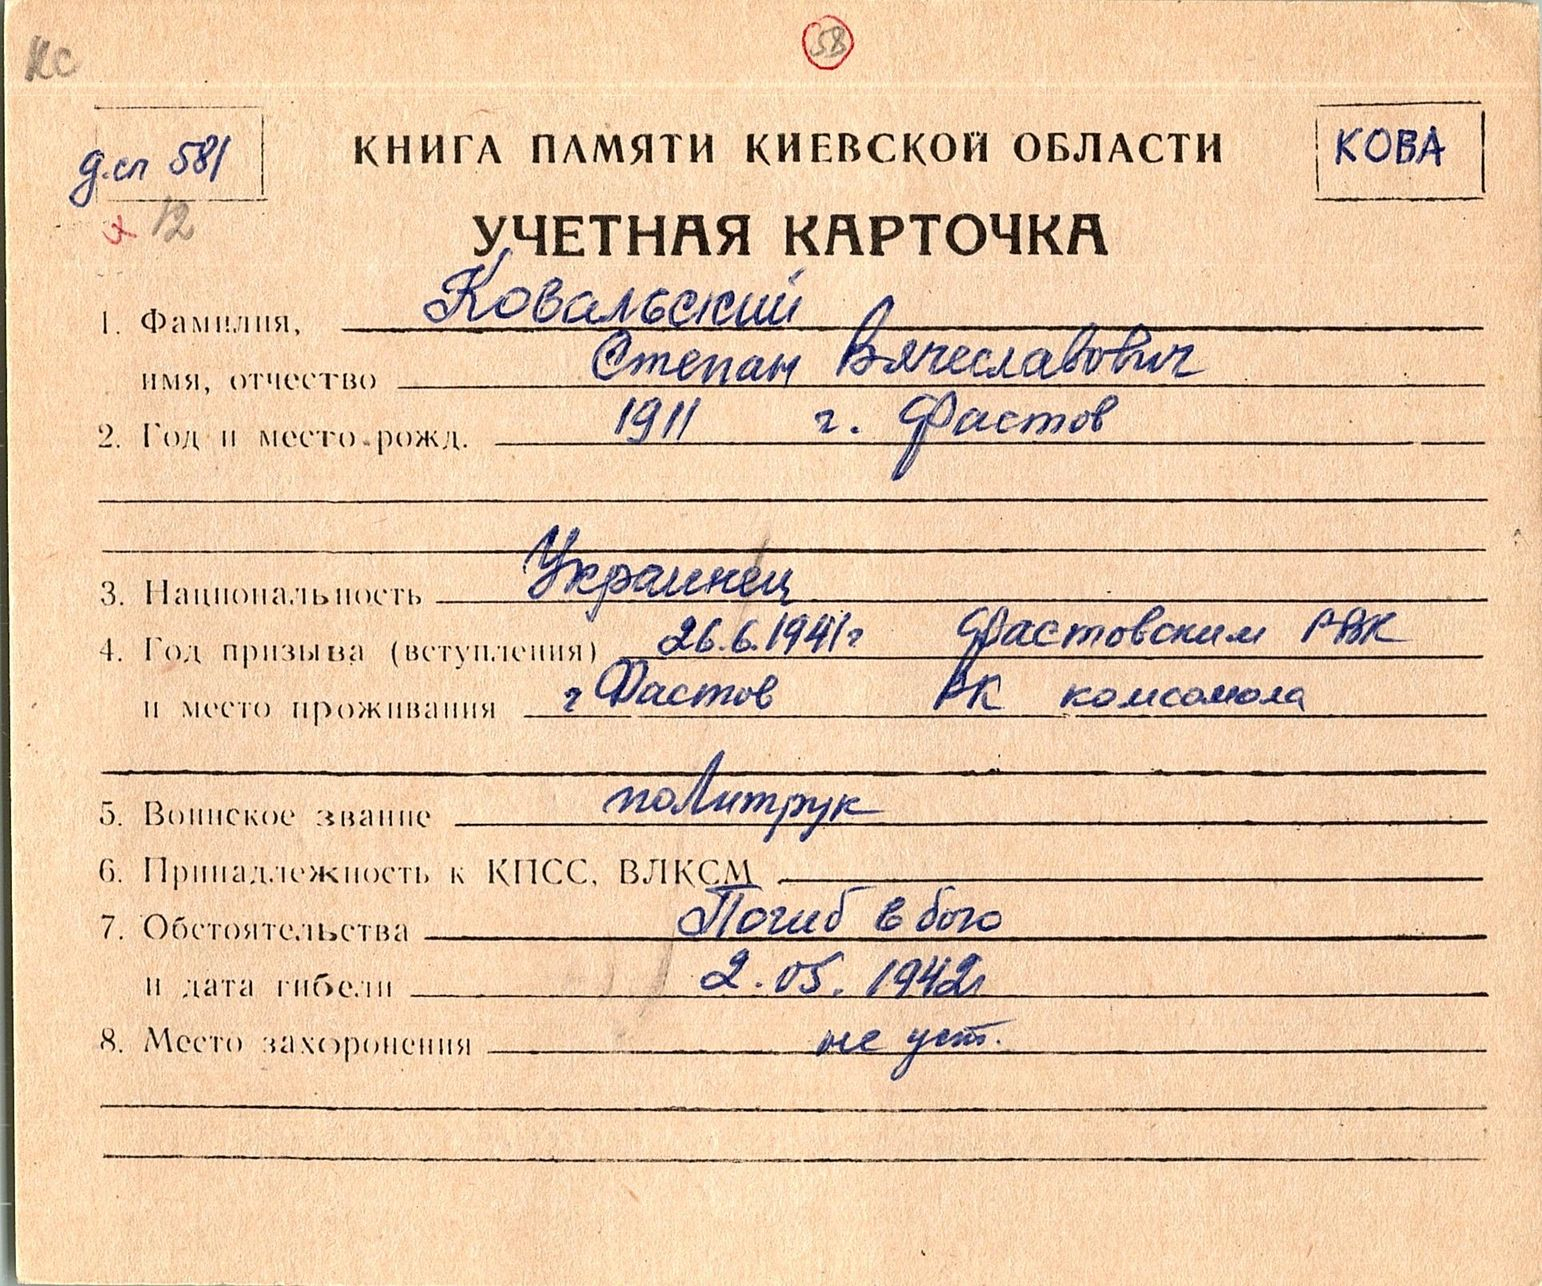 КС
58
д.сп 581
КНИГА ПАМЯТИ КИЕВСКОЙ ОБЛАСТИ
КОВА
12
УЧЕТНАЯ КАРТОЧКА
1. Фамилия, Ковальский
имя, отчество Степан Вячеславович
2. Год и место рожд. 1911 г. Фастов
3. Национальность Украинец
4. Год призыва (вступления) 26.6.1941г Фастовским РВК
и место проживания г Фастов РК комсомола
5. Воинское звание политрук
6. Принадлежность к КПСС, ВЛКСМ
7. Обстоятельства Погиб в бою
и дата гибели 2.05.1942г
8. Место захоронения не уст.